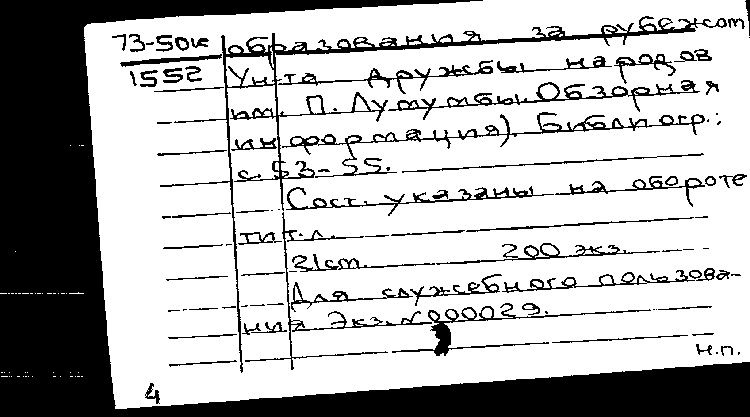 73-50к образования за рубежом
1552 Ун-та дружбы народов
им. П. Лумумбы. Обзорная
информация). Библиогр.:
с. 53-55.
Сост. указаны на обороте
тит. л.
21 cm. 200 экз.
Для служебного пользова-
ния Экз. №000029.
Н.П.
4